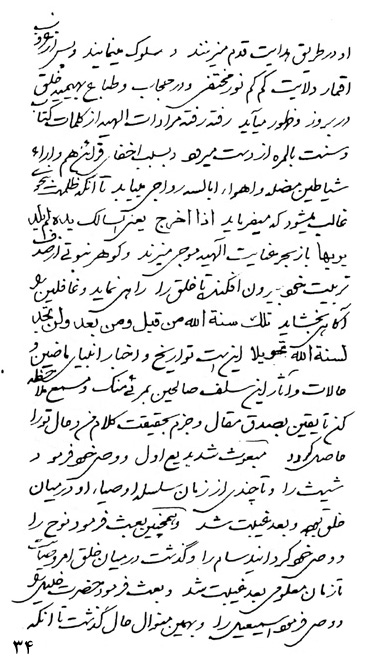 او در طریق هدایت قدم میزنند و سلوک مینمایند و پس از غروب
اقمار ولایت کم کم نور مختفی و در حجاب و طباع بهیمیه خلق
در بروز و ظهور میآید رفته رفته مرادات الهیه از کلمات کتاب
و سنت بالمره از دست میرود و بسبب اخفای قرائن هم و اراء
شیاطین مضله و اهواء ابالسه رواجی مییابد تا آنکه ظلمت بنحوی
غالب میشود که میفرماید اذا اخرج یعنی آسالک یده لم یکد
یریها باز بحر عنایت الهیه موجی میزند و گوهر نبوتی از صدف
تربیت خود بیرون افکنده تا خلق را راهی نماید و غافلین را
آگاهی بخشاید تلک سنة الله من قبل و من بعد ولن تجد
لسنة الله تحویلا این است تواریخ و اخبار انبیای ماضین و
حالات و آثار این سلف صالحین بمرئی منک و مسمع ملاحظه
کن تا یقین بصدق مقال و جزم بحقیقت کلام من در حال تو را
حاصل گردد مبعوث شد بدیع اول و وصی خود فرمود
شیث را و تا چندی از زمان سلسله اوصیاء او در میان
خلق بود و بعد غیبت شد و همچنین بعث فرمود نوح را
و وصی خود گردانید سام را و گذشت در میان خلق امر وصایت
تا زمان معلومی بعد غیبت شد و بعث فرمود حضرت خلیل را
و وصی فرمود اسمعیل را و بهمین منوال حال گذشت تا آنکه
۳۴